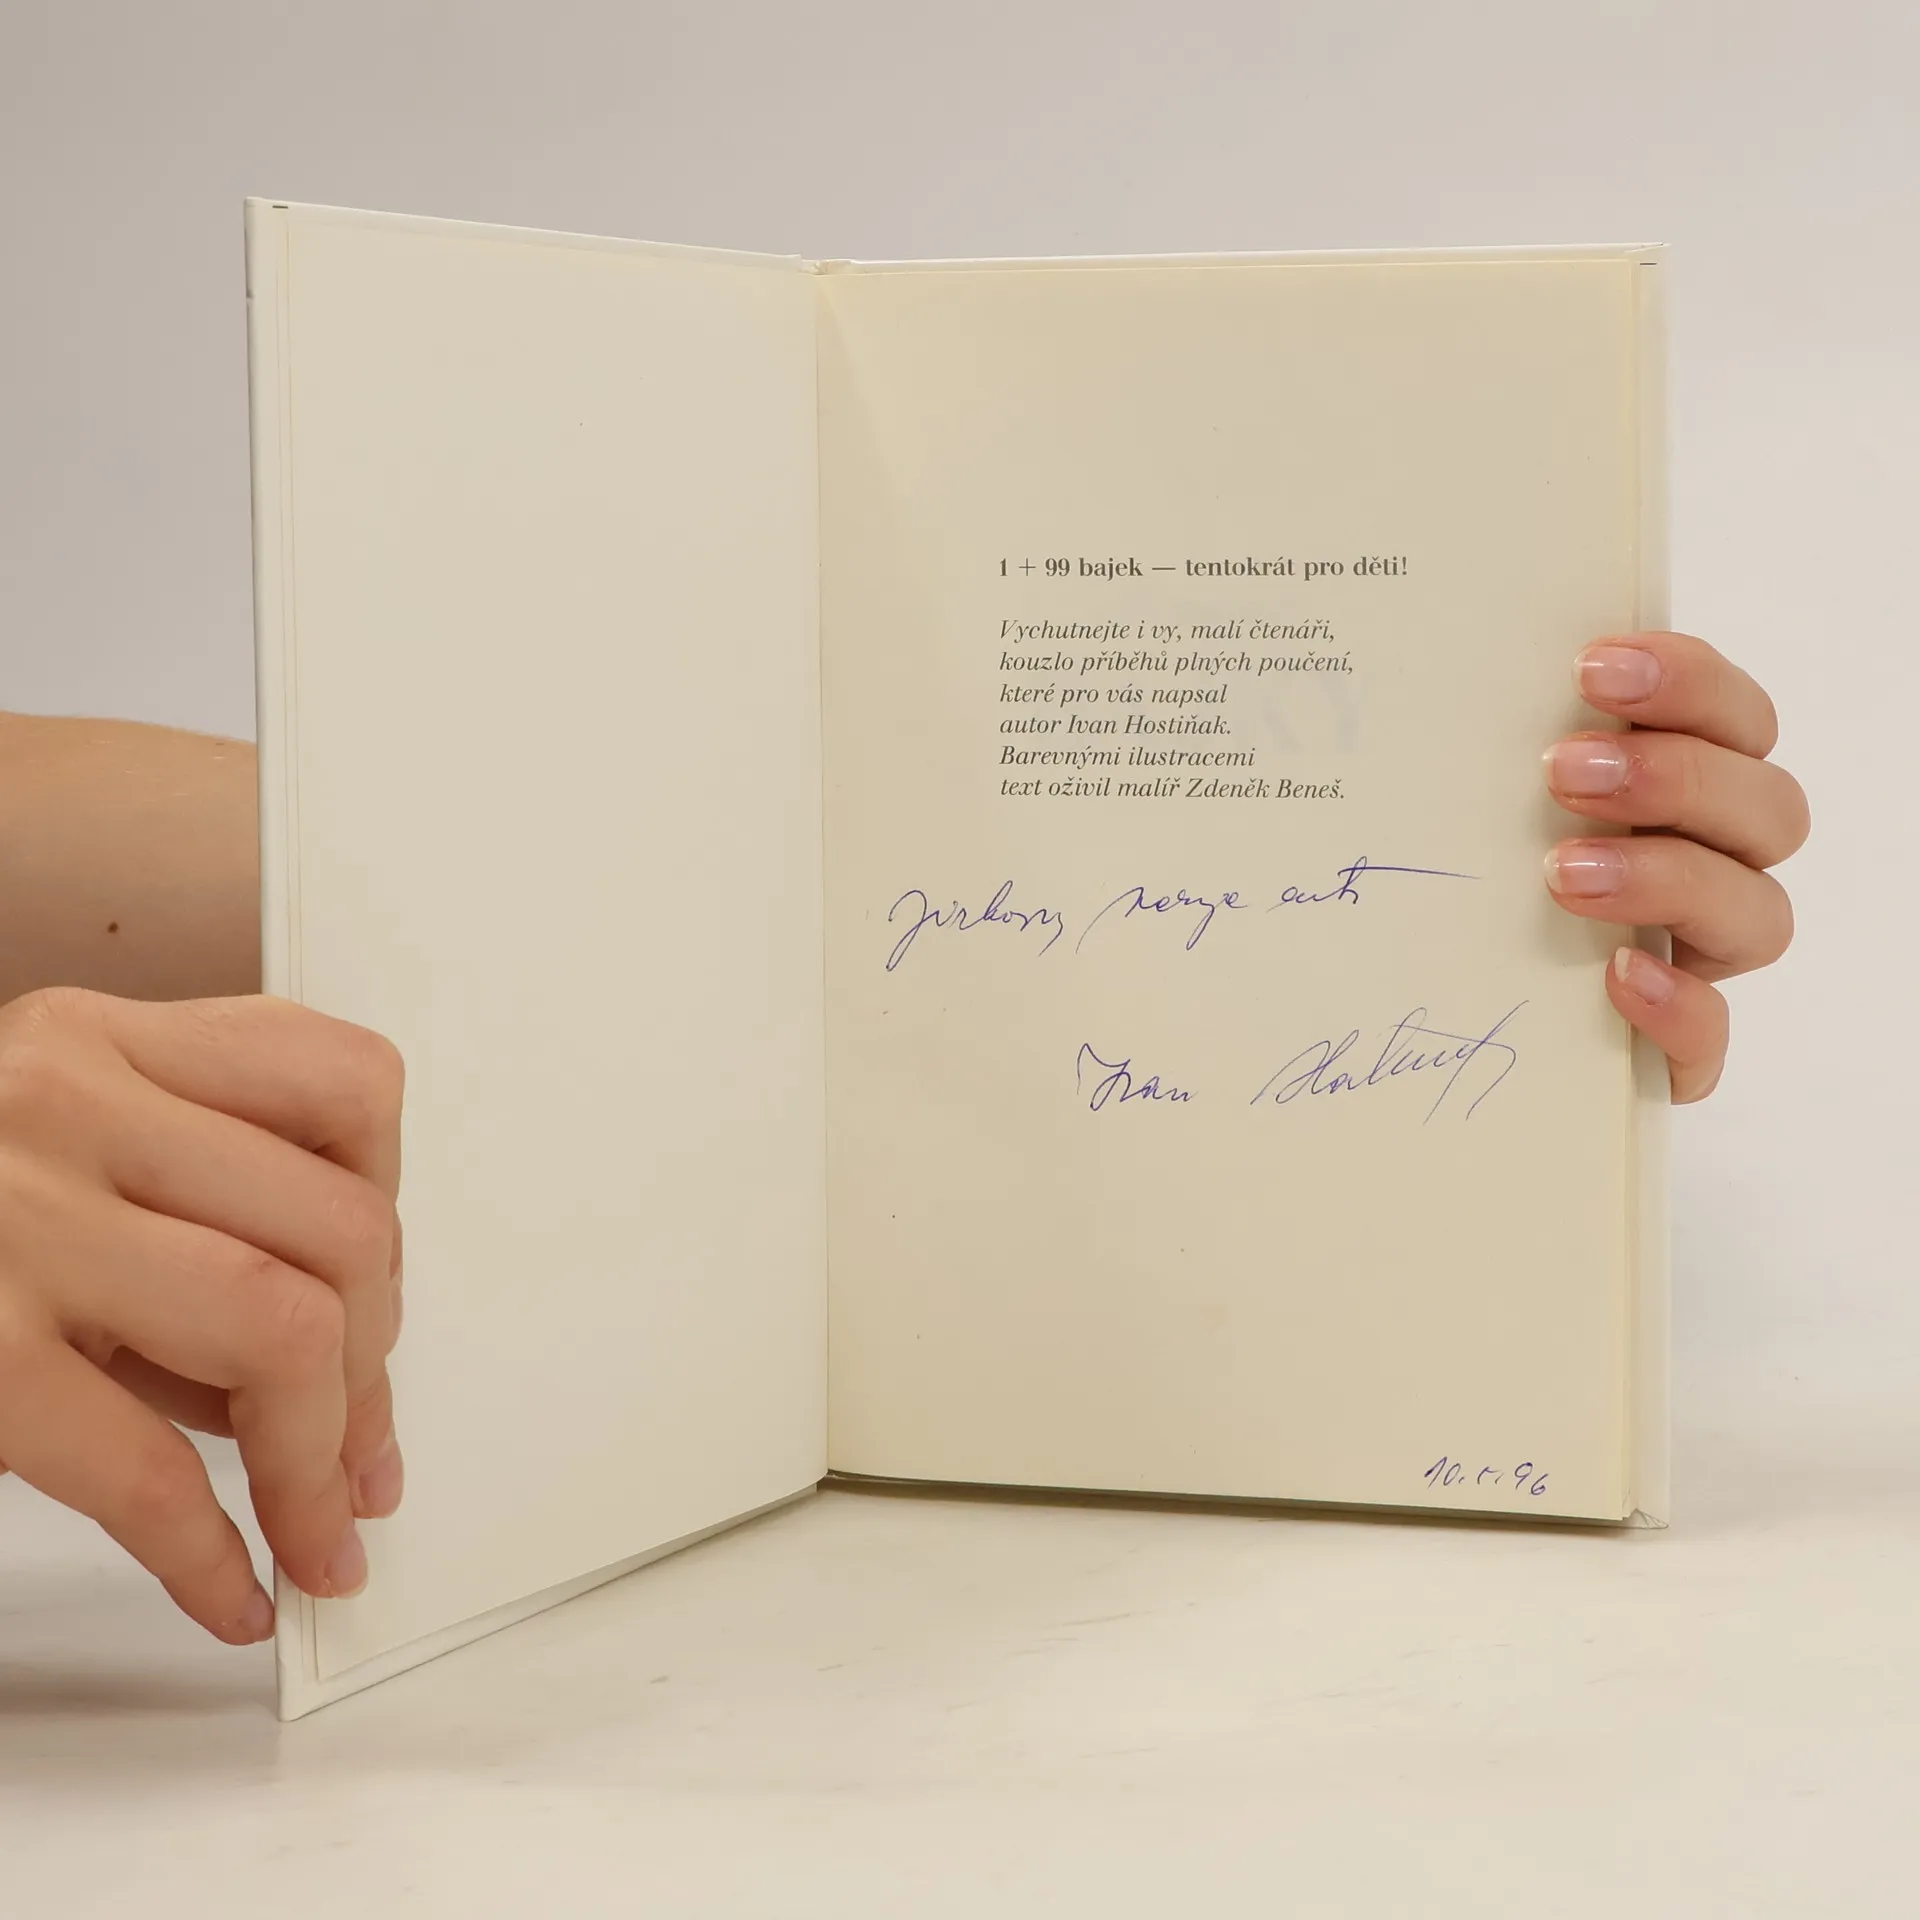 1 + 99 bajek — tentokrát pro děti!
Vychutnejte i vy, malí čtenáři,
kouzlo příběhů plných poučení,
které pro vás napsal
autor Ivan Hostiňak.
Barevnými ilustracemi
text oživil malíř Zdeněk Beneš.
Jirkovi
Ivan